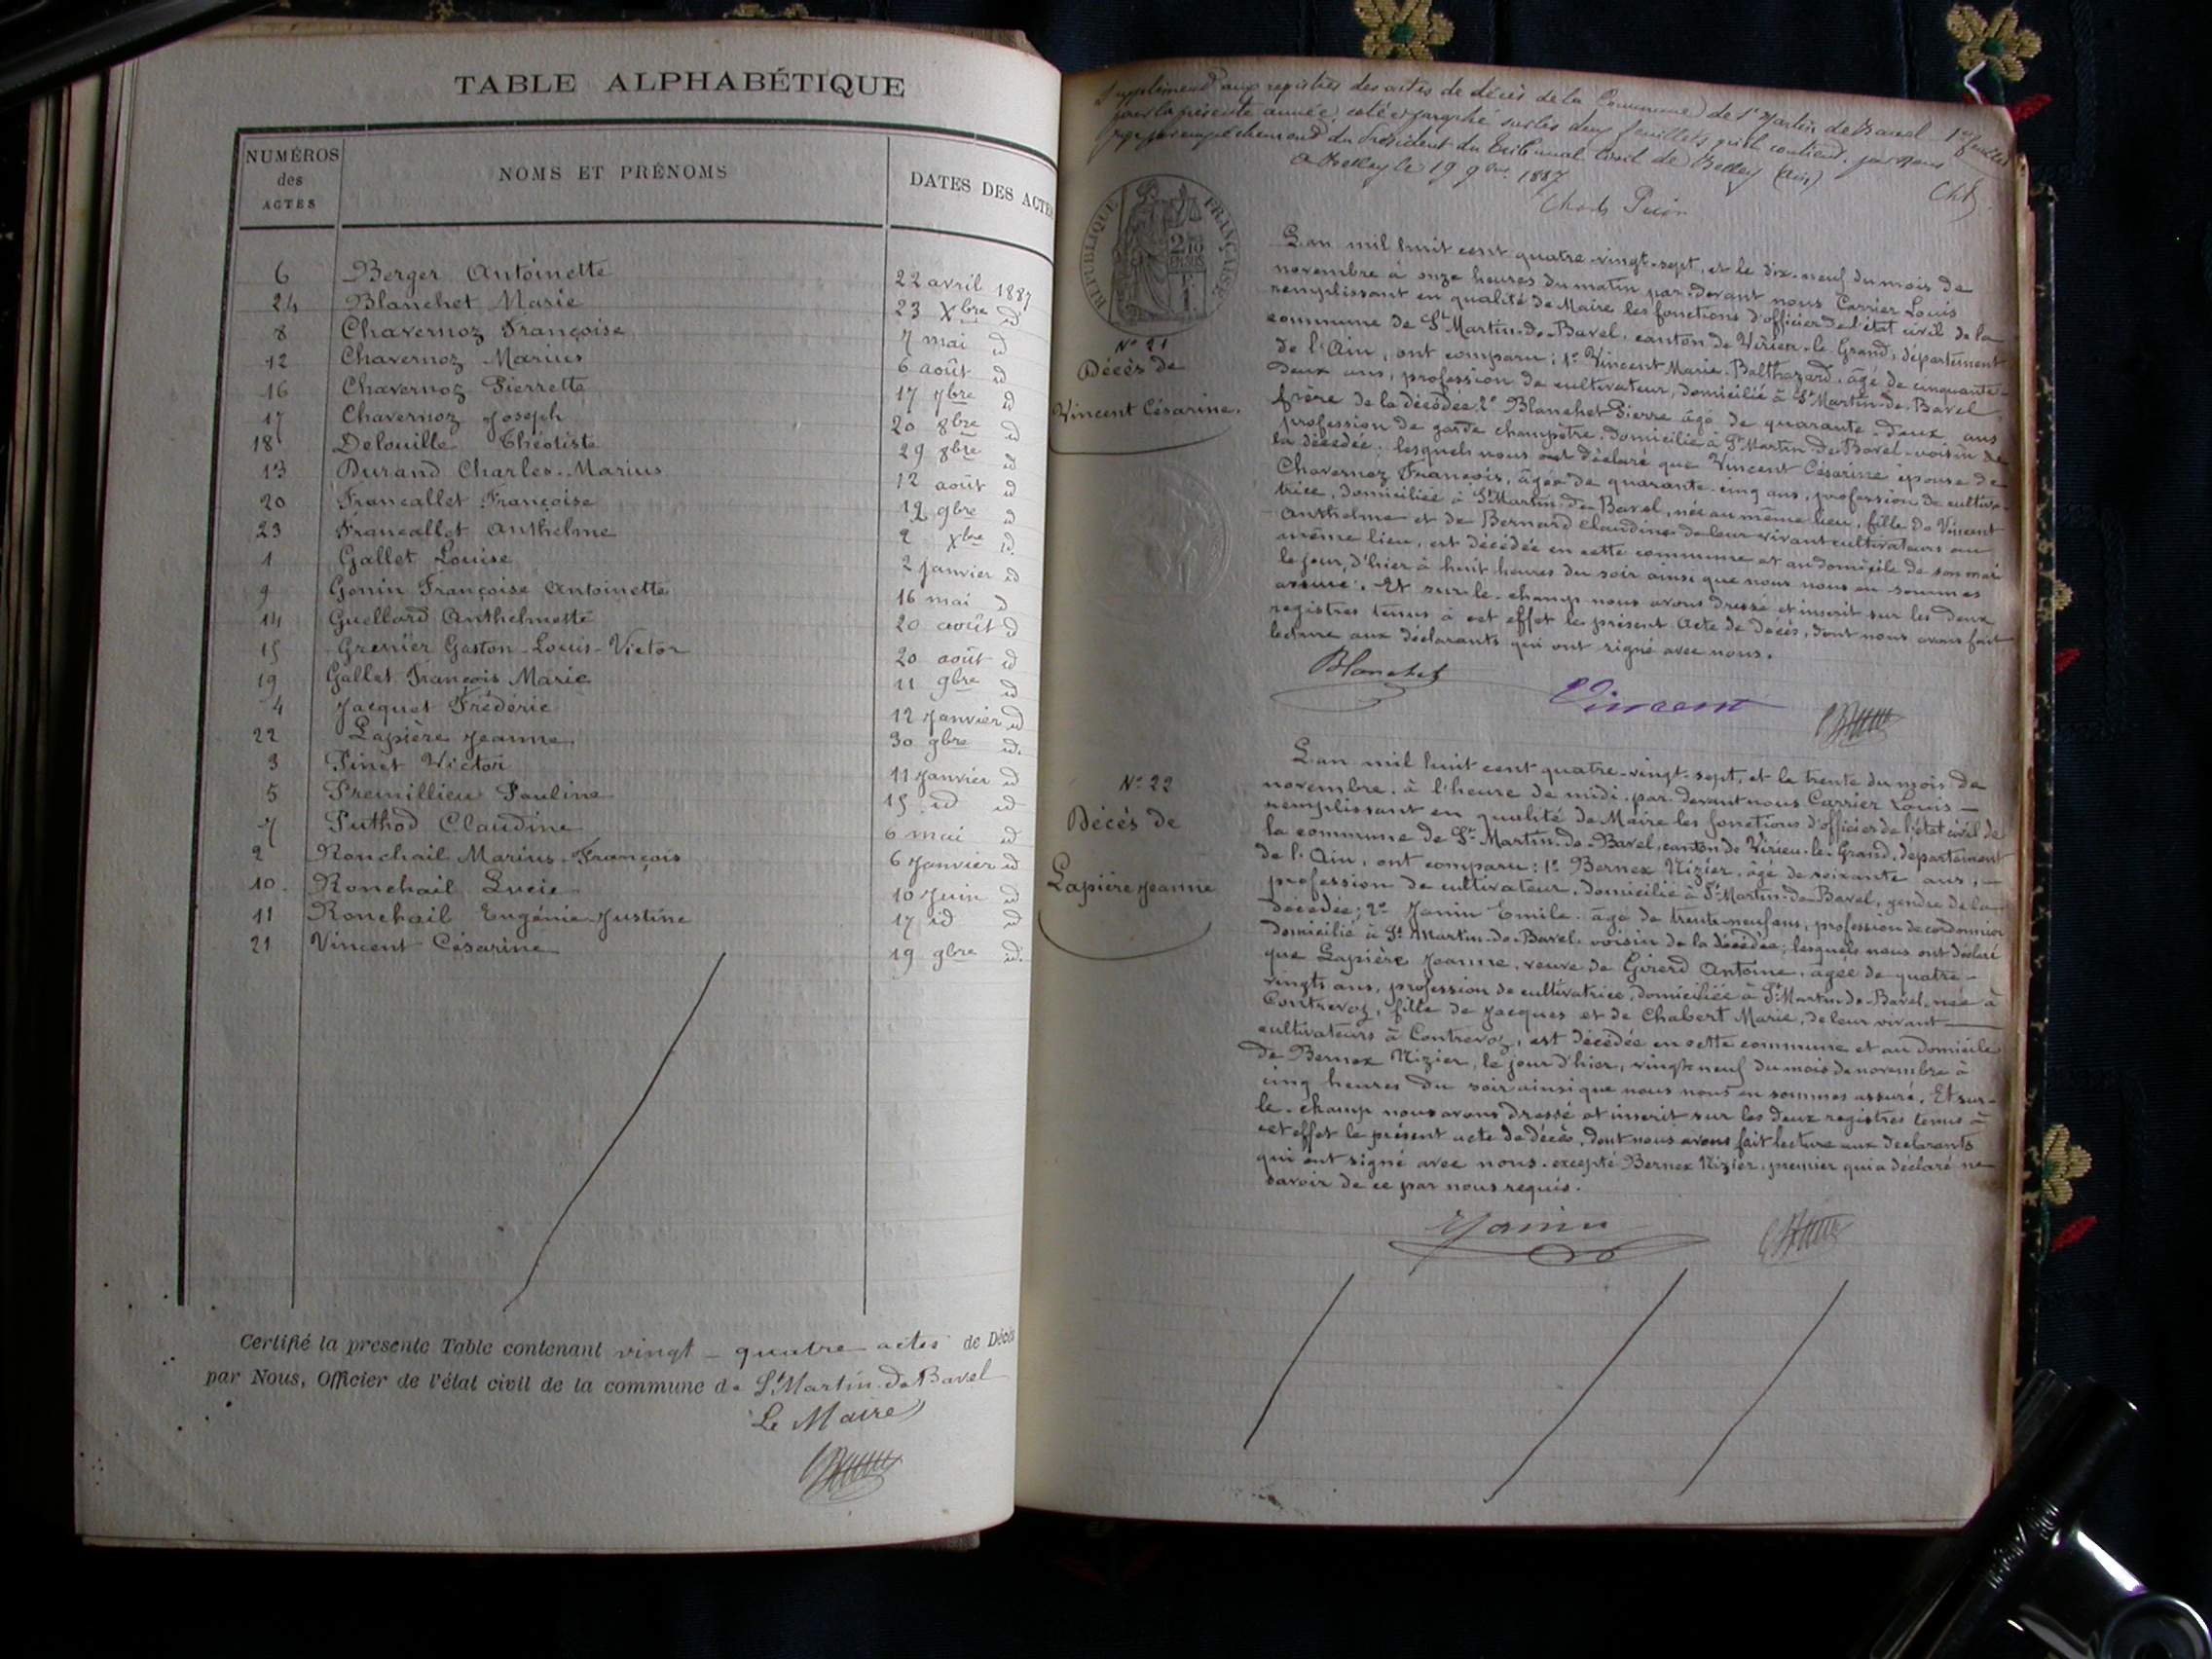 TABLE ALPHABÉTIQUE
NUMÉROS des ACTES NOMS ET PRÉNOMS DATES DES ACTES
6 Berger Antoinette 22 avril 1887
24 Blanchet Marie 23 Xbre id
8 Chavernoz Françoise 7 mai id
12 Chavernoz Marius 6 août id
16 Chavernoz Pierrette 17 7bre id
17 Chavernoz Joseph 20 8bre id
18 Delouille Théotiste 29 8bre id
13 Durand Charles-Marius 12 août id
20 Francallet Françoise 19 9bre id
23 Francallet Anthelme 2 Xbre id
1 Gallet Louise 2 janvier id
9 Gonin Françoise Antoinette 16 mai id
14 Guellard Anthelmette 20 août id
15 Grenier Gaston-Louis-Victor 20 août id
19 Gallet François Marie 11 9bre id
4 Jacquet Frédéric 12 Janvier id
22 Lapière Jeanne 30 9bre id.
3 Pinet Victor 11 Janvier id
5 Premillieu Pauline 15 id id
7 Puthod Claudine 6 mai id
2 Ronchail Marius-François 6 Janvier id
10. Ronchail Lucie 10 Juin id
11 Ronchail Eugénie-Justine 17 id id
21 Vincent Césarine 19 9bre id.
Certifié la présente Table contenant vingt-quatre actes de Décès
par Nous, Officier de l'état civil de la commune de St Martin-de-Bavel
Le Maire
Supplément aux registres des actes de décès de la Commune de St Martin de Bavel 1er feuillet
pour la présente année, coté et paraphé sur les deux feuillets qu'il contient, par nous
juge par empêchement du Président du Tribunal Civil de Belley (Ain)
A Belley le 19 9bre 1887
RÉPUBLIQUE FRANÇAISE
2/10 EN SUS
Nº 21
Décès de
Vincent Césarine.
L'an mil huit cent quatre-vingt-sept, et le dix-neuf du mois de
novembre à onze heures du matin par-devant nous Carrier Louis
remplissant en qualité de Maire les fonctions d'officier de l'état civil de la
commune de St Martin-de-Bavel, canton de Virieu-le-Grand, département
de l'Ain, ont comparu: 1º Vincent Marie-Balthazard, âgé de cinquante-
deux ans, profession de cultivateur, domicilié à St Martin-de-Bavel
frère de la décédée. 2º Blanchet Pierre âgé de quarante-deux ans
profession de garde champêtre, domicilié à St Martin-de-Bavel voisin de
la décédée; lesquels nous ont déclaré que Vincent Césarine épouse de
Chavernoz François, âgée de quarante-cinq ans, profession de cultiva-
trice, domiciliée à St Martin-de-Bavel, née au même lieu, fille de Vincent
Anthelme et de Bernard Claudine de leur vivant cultivateurs au
même lieu, est décédée en cette commune et au domicile de son mari
le jour d'hier à huit heures du soir ainsi que nous nous en sommes
assuré. Et sur-le-champ nous avons dressé et inscrit sur les deux
registres tenus à cet effet le présent Acte de décès, dont nous avons fait
lecture aux déclarants qui ont signé avec nous.
Blanchet Vincent
Nº 22
Décès de
Lapière Jeanne
L'an mil huit cent quatre-vingt-sept, et le trente du mois de
novembre, à l'heure de midi, par-devant nous Carrier Louis
remplissant en qualité de Maire les fonctions d'officier de l'état civil de
la commune de St Martin-de-Bavel, canton de Virieu-le-Grand, département
de l'Ain, ont comparu: 1º Bernex Nizier, âgé de soixante ans,
profession de cultivateur, domicilié à St Martin-de-Bavel, gendre de la
décédée; 2º Janin Emile, âgé de trente-neuf ans, profession de cordonnier
domicilié à St Martin-de-Bavel, voisin de la décédée; lesquels nous ont déclaré
que Lapière Jeanne, veuve de Girerd Antoine, âgée de quatre-
vingts ans, profession de cultivatrice, domiciliée à St Martin-de-Bavel, née à
Contrevoz, fille de Jacques et de Chabert Marie, de leur vivant
cultivateurs à Contrevoz, est décédée en cette commune et au domicile
de Bernex Nizier, le jour d'hier, vingt-neuf du mois de novembre à
cinq heures du soir ainsi que nous nous en sommes assuré. Et sur-
le-champ nous avons dressé et inscrit sur les deux registres tenus à
cet effet le présent acte de décès, dont nous avons fait lecture aux déclarants
qui ont signé avec nous, excepté Bernex Nizier, premier qui a déclaré ne
savoir de ce par nous requis.
Janin